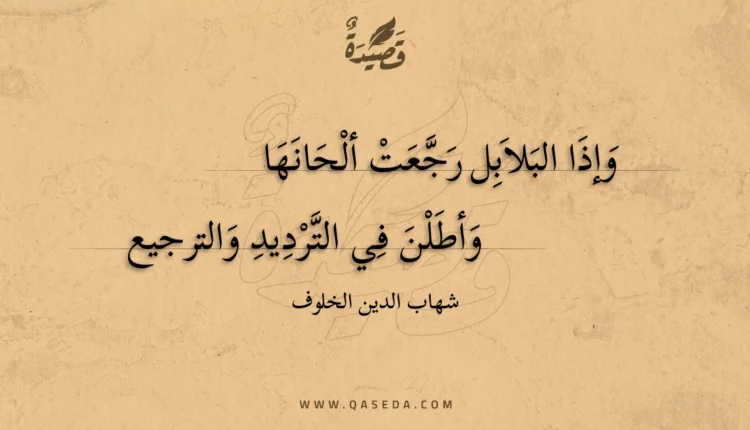 قَصِيْدَةٌ
وَإذَا البَلاَبِل رَجَّعَتْ ألْحَانَهَا
وَأطَلْنَ فِي التَّرْدِيدِ وَالترجيع
شهاب الدين الخلوف
WWW.QASEDA.COM